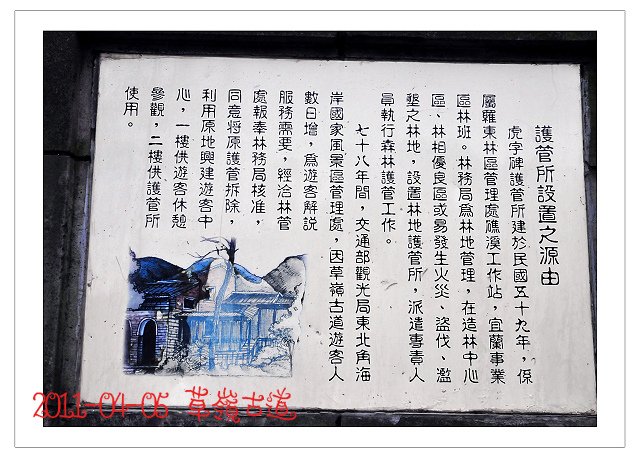 護管所設置之源由
虎字碑護管所建於民國五十九年，係
屬羅東林區管理處礁溪工作站，宜蘭事業
區林班。林務局為林地管理，在造林中心
區、林相優良區或易發生火災、盜伐、濫
墾之林地，設置林地護管所，派遣專責人
員執行森林護管工作。
七十八年間，交通部觀光局東北角海
岸國家風景區管理處，因草嶺古道遊客人
數日增，為遊客解說
服務需要，經洽林管
處報奉林務局核准，
同意將原護管拆除，
利用原地興建遊客中
心，一樓供遊客休憩
參觀，二樓供護管所
使用。
2011-04-05 草嶺古道